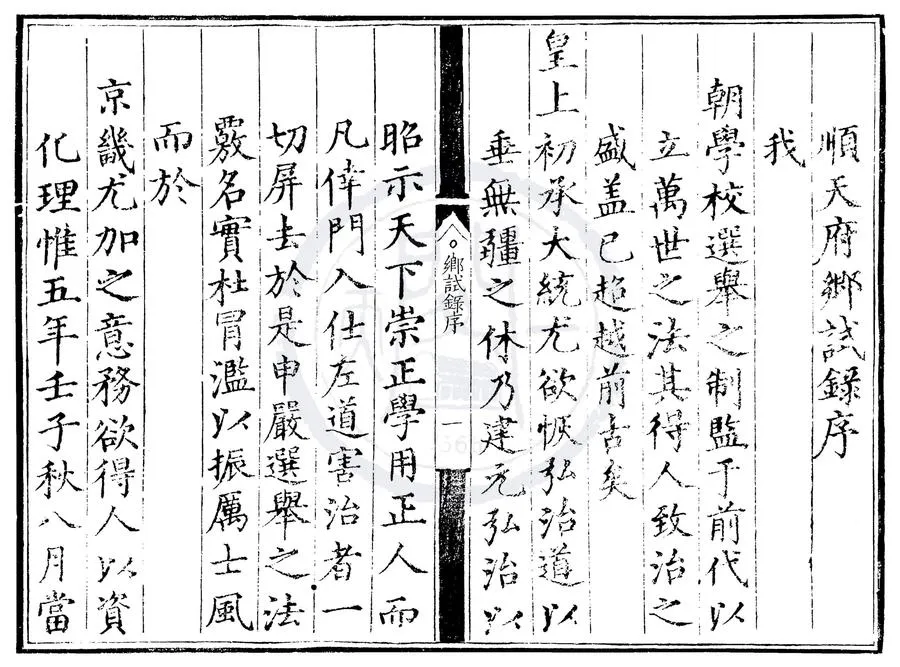 順天府鄉試錄序
我
朝學校選舉之制監于前代以
立萬世之法其得人致治之
盛盖已超越前古矣
皇上初承大統尤欲恢弘治道以
垂無疆之休乃建元弘治以
鄉試錄序 一
昭示天下崇正學用正人而
凡倖門入仕左道害治者一
切屏去於是申嚴選舉之法
覈名實杜冒濫以振厲士風
而於
京畿尤加之意務欲得人以資
化理惟五年壬子秋八月當